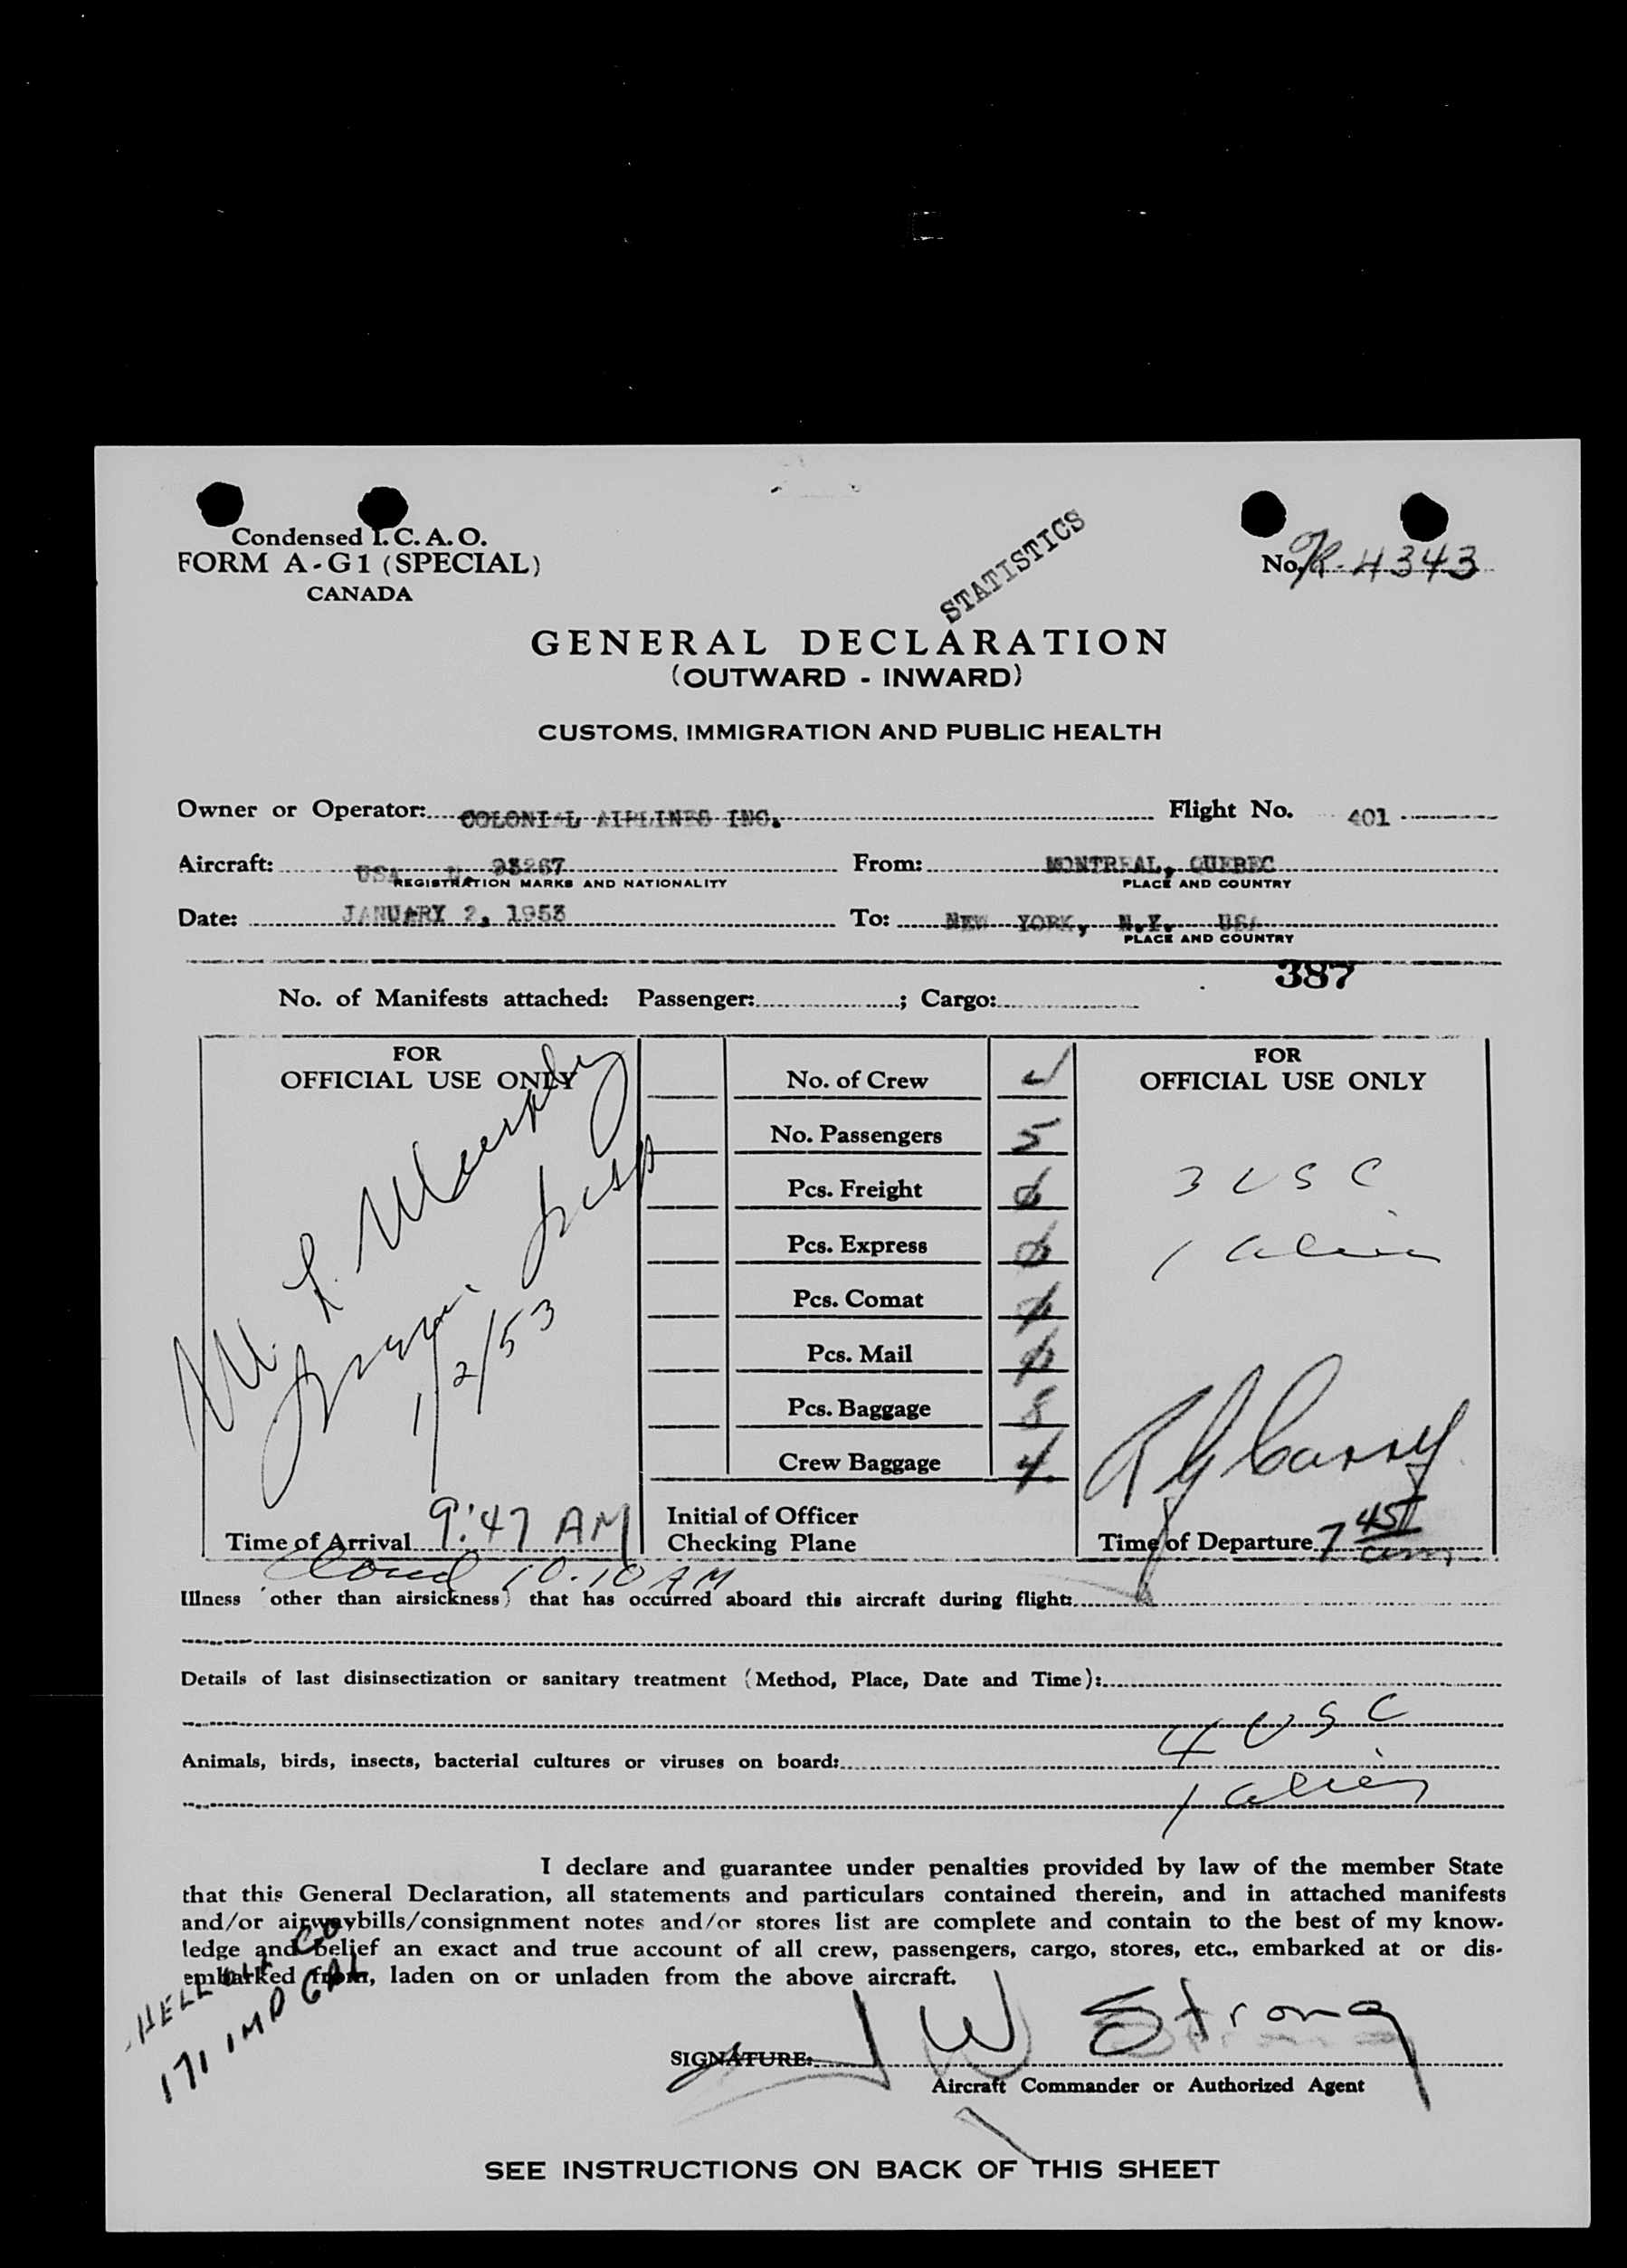 Condensed I.C.A.O.
FORM A-G1 (SPECIAL)
CANADA
STATISTICS
No. 4343
GENERAL DECLARATION
(OUTWARD - INWARD)
CUSTOMS, IMMIGRATION AND PUBLIC HEALTH
Owner or Operator: COLONIAL AIRLINES INC. Flight No. 401
Aircraft: USA N. 93267 From: MONTREAL, QUEBEC
REGISTRATION MARKS AND NATIONALITY PLACE AND COUNTRY
Date: JANUARY 2, 1953 To: NEW YORK, N.Y. USA
PLACE AND COUNTRY
387
No. of Manifests attached: Passenger: ; Cargo:
FOR
OFFICIAL USE ONLY
M. L.
1/2/53
Time of Arrival 9:47 AM
No. of Crew
No. Passengers 5
Pcs. Freight
Pcs. Express
Pcs. Comat
Pcs. Mail
Pcs. Baggage 8
Crew Baggage 4
Initial of Officer
Checking Plane
FOR
OFFICIAL USE ONLY
3 USC
1 alien
Time of Departure 7 45
10.10 AM
Illness other than airsickness) that has occurred aboard this aircraft during flight:
Details of last disinsectization or sanitary treatment (Method, Place, Date and Time):
4 USC
Animals, birds, insects, bacterial cultures or viruses on board:
1 alien
I declare and guarantee under penalties provided by law of the member State
that this General Declaration, all statements and particulars contained therein, and in attached manifests
and/or airwaybills/consignment notes and/or stores list are complete and contain to the best of my know-
ledge and belief an exact and true account of all crew, passengers, cargo, stores, etc., embarked at or dis-
embarked from, laden on or unladen from the above aircraft.
171 IMP GAL
SIGNATURE: J W Strong
Aircraft Commander or Authorized Agent
SEE INSTRUCTIONS ON BACK OF THIS SHEET